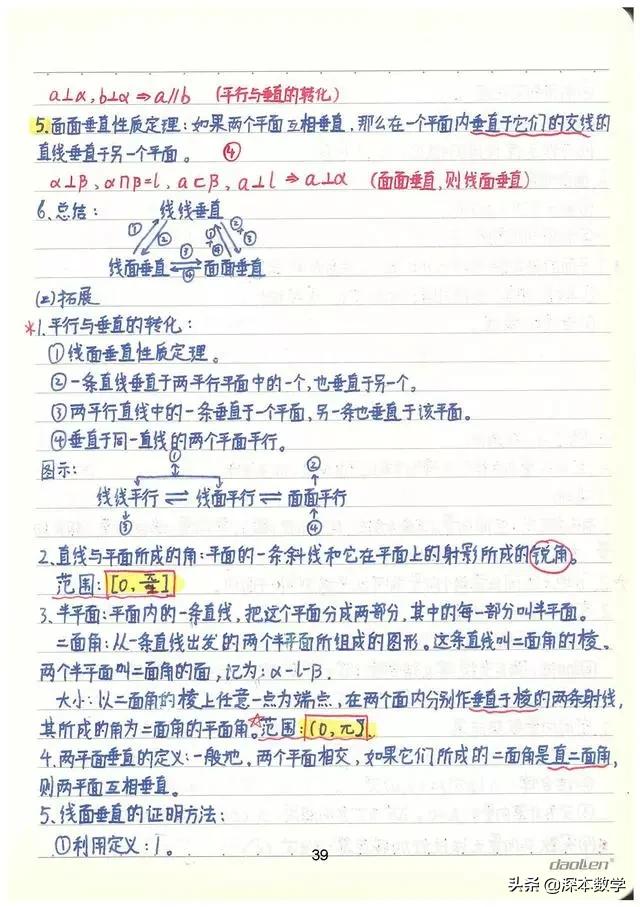 a⊥α, b⊥α ⇒ a∥b (平行与垂直的转化)
5.面面垂直性质定理:如果两个平面互相垂直,那么在一个平面内垂直于它们的交线的
直线垂直于另一个平面。 ④
α⊥β, α∩β=l, a⊂β, a⊥l ⇒ a⊥α (面面垂直,则线面垂直)
6.总结: 线线垂直
① ② ① ④ ② ③
线面垂直 ③ ④ 面面垂直
(二)拓展
*1.平行与垂直的转化:
①线面垂直性质定理。
②一条直线垂直于两平行平面中的一个,也垂直于另一个。
③两平行直线中的一条垂直于一个平面,另一条也垂直于该平面。
④垂直于同一直线的两个平面平行。
图示: ① ②
线线平行 ⇌ 线面平行 ⇌ 面面平行
③ ④
2.直线与平面所成的角:平面的一条斜线和它在平面上的射影所成的锐角。
范围:[0, ]
3.半平面:平面内的一条直线,把这个平面分成两部分,其中的每一部分叫半平面。
二面角:从一条直线出发的两个半平面所组成的图形。这条直线叫二面角的棱。
两个半平面叫二面角的面,记为:α-l-β.
大小:以二面角的棱上任意一点为端点,在两个面内分别作垂直于棱的两条射线,
其所成的角为二面角的平面角。☆范围:(0,π].
4.两平面垂直的定义:一般地,两个平面相交,如果它们所成的二面角是直二面角,
则两平面互相垂直。
5.线面垂直的证明方法:
①利用定义:1。
39
daolen
头条@深本数学